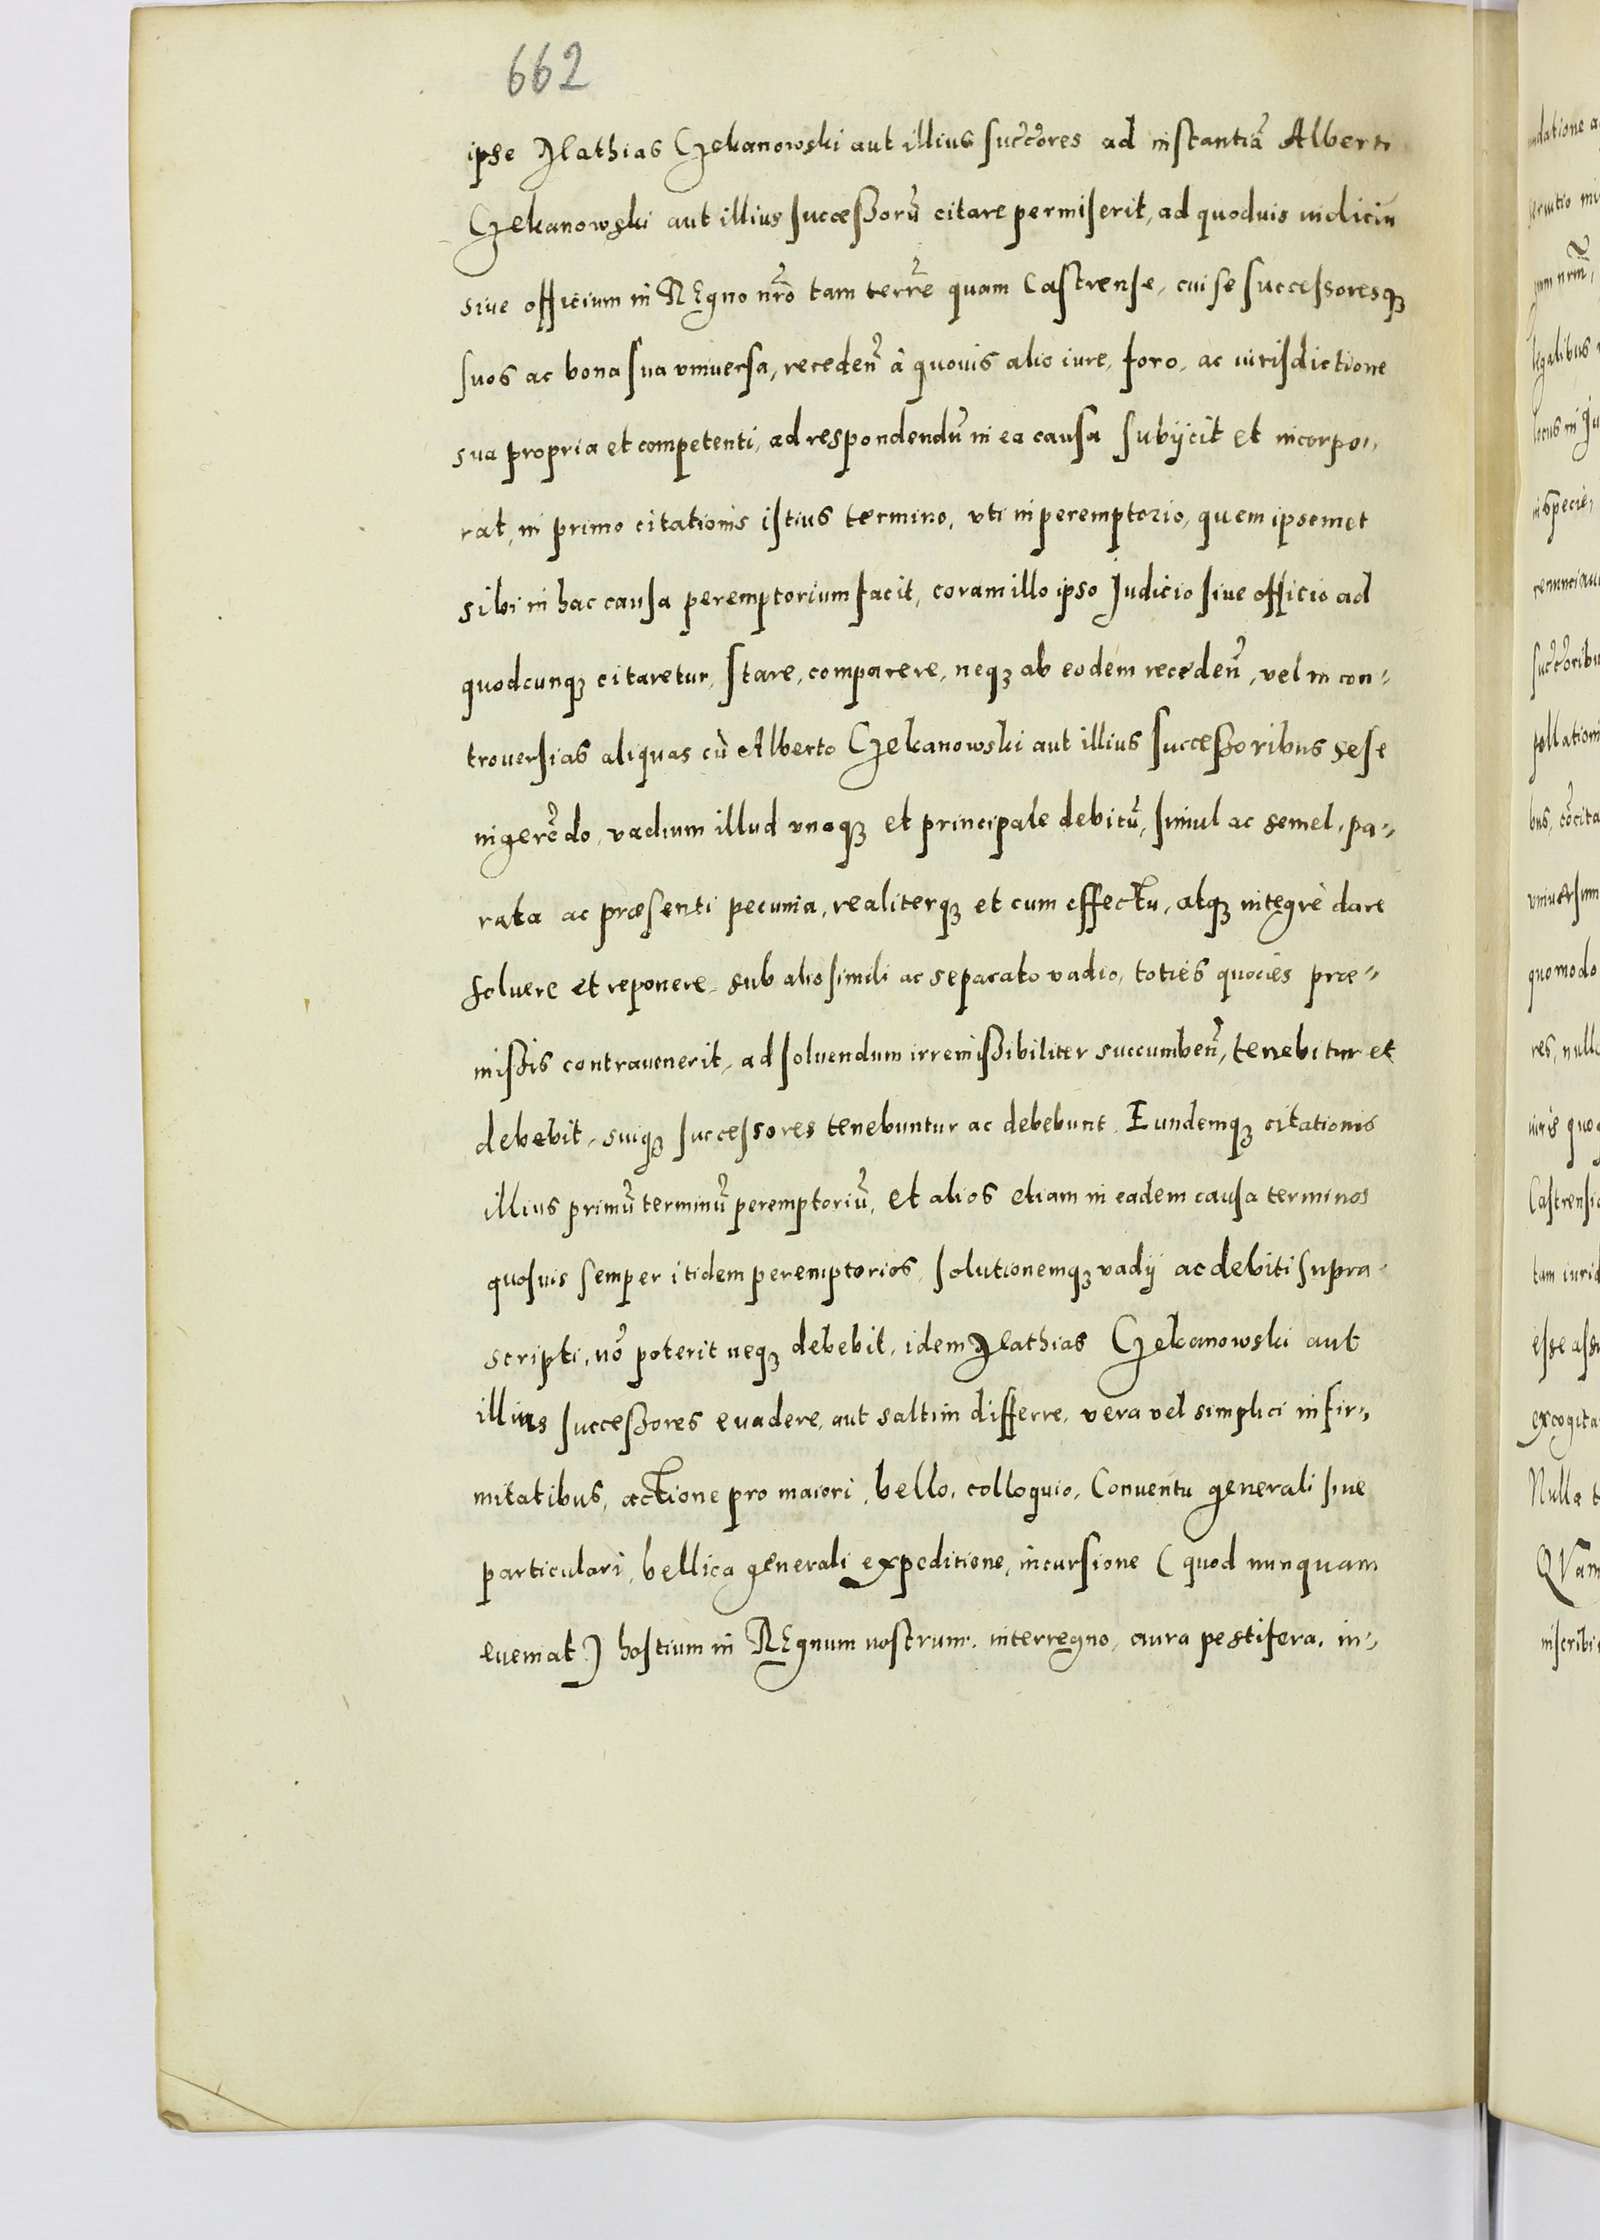 662
ipse Mathias Czekanowski aut illius succ̃ores ad instantiã Alberti
Czekanowski aut illius successorũ citare permiserit, ad quoduis iudiciũ
siue officium in REgno nr̃o tam terrẽ quam Castrense, cui se successoresqꝫ
suos ac bona sua vniuersa, recedeñ à quouis alio iure, foro, ac iurisdictione
sua propria et competenti, ad respondendũ in ea causa subijcit et incorpo„
rat, in primo citationis istius termino, vti in peremptorio, quem ipsemet
sibi in hac causa peremptorium facit, coram illo ipso Judicio siue officio ad
quodcunqꝫ citaretur, stare, comparere, neqꝫ ab eodem recedeñ, vel in con„
trouersias aliquas cũ Alberto Czekanowski aut illius successoribus sese
ingerẽdo, vadium illud vnaqꝫ et principale debitũ, simul ac semel, pa„
rata ac præsenti pecunia, realiterqꝫ et cum effectu, atqꝫ integrè dare
soluere et reponere, sub alio simili ac separato vadio, toties quocies præ„
missis contrauenerit, ad soluendum irremissibiliter succumbeñ, tenebitur et
debebit, suiqꝫ successores tenebuntur ac debebunt. Eundemqꝫ citationis
illius primũ terminũ peremptoriũ, et alios etiam in eadem causa terminos
quosuis semper itidem peremptorios, solutionemqꝫ vadij ac debiti supra
scripti, nõ poterit neqꝫ debebit, idem Mathias Czekanowski aut
illius successores euadere, aut saltim differre, vera vel simplici infir„
mitatibus, actione pro maiori, bello, colloquio, Conuentu generali siue
particulari, bellica generali expeditione, incursione (quod nunquam
eueniat) hostium in REgnum nostrum, interregno, aura pestifera, in„